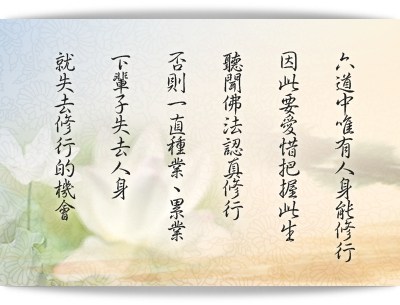 六道中唯有人身能修行
因此要愛惜把握此生
聽聞佛法認真修行
否則一直種業、累業
下輩子失去人身
就失去修行的機會